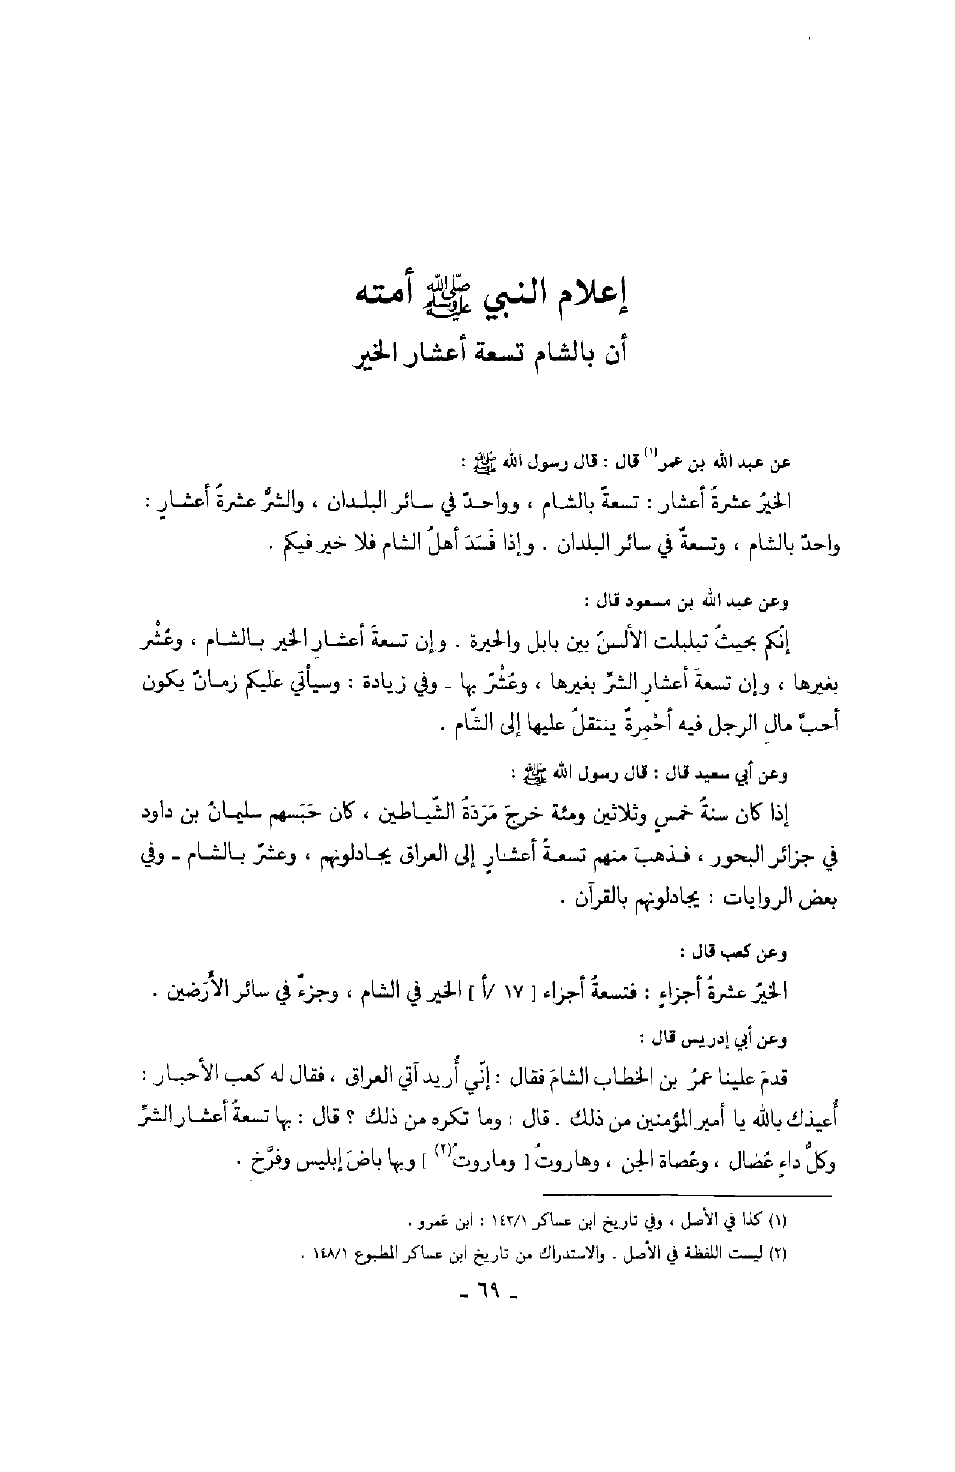 إعلام النبي ﷺ أمته
أن بالشام تسعة أعشار الخير
عن عبد الله بن عمر(١) قال : قال رسول الله ﷺ :
الخيرُ عشرةُ أعشار : تسعةٌ بالشام ، وواحدٌ في سائر البلدان ، والشرُّ عشرةُ أعشارٍ :
واحدٌ بالشام ، وتسعةٌ في سائر البلدان . وإذا فَسَدَ أهلُ الشام فلا خير فيكم .
وعن عبد الله بن مسعود قال :
إنّكم بحيثُ تبلبلت الألسنُ بين بابل والحيرة . وإن تسعةَ أعشارِ الخير بالشام ، وعُشْر
بغيرها ، وإن تسعةَ أعشارِ الشرّ بغيرها ، وعُشْرٌ بها ـ وفي زيادة : وسيأتي عليكم زمانٌ يكون
أحبَّ مالِ الرجل فيه أحْمِرةٌ ينتقلُ عليها إلى الشّام .
وعن أبي سعيد قال : قال رسول الله ﷺ :
إذا كان سنةُ خمسٍ وثلاثين ومئة خرجَ مَرَدَةُ الشّياطين ، كان حَبَسهم سليمانُ بن داود
في جزائر البحور ، فذهبَ منهم تسعةُ أعشارٍ إلى العراق يجادلونهم ، وعشرٌ بالشام ـ وفي
بعض الروايات : يجادلونهم بالقرآن .
وعن كعب قال :
الخيرُ عشرةُ أجزاءٍ : فتسعةُ أجزاء [ ١٧ /أ ] الخير في الشام ، وجزءٌ في سائر الأَرَضين .
وعن أبي إدريس قال :
قدمَ علينا عمرُ بن الخطاب الشامَ فقال : إنّي أُريد آتي العراق ، فقال له كعب الأحبار :
أُعيذك بالله يا أمير المؤمنين من ذلك . قال : وما تكره من ذلك ؟ قال : بها تسعةُ أعشار الشرِّ
وكلُّ داءٍ عُضال ، وعُصاة الجن ، وهاروتُ [ وماروتُ(٢) ] وبها باضَ إبليس وفرَّخ .
(١) كذا في الأصل ، وفي تاريخ ابن عساكر ١٤٣/١ : ابن عَمرو .
(٢) ليست اللفظة في الأصل . والاستدراك من تاريخ ابن عساكر المطبوع ١٤٨/١ .
ـ ٦٩ ـ